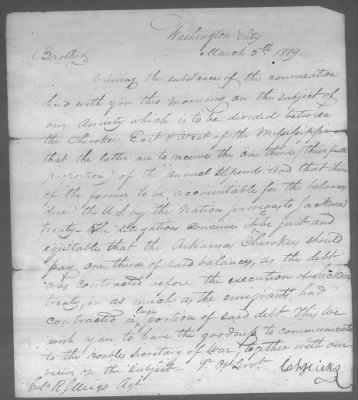 Washington City
March 5th 1819
Brother
Viewing the substance of the conversation
had with you this morning on the subject of
our annuity which is to be divided between
the Cherokees East & West of the Mississippi
that the latter are to receive the one third (their full
proportion) of the Annual Stipends and that those
of the former to be accountable for the balances
due the U.S. by the Nation previous to Jackson's
treaty - The delegation conceive it to be just and
equitable that the Arkansas Cherokees should
pay one third of said balances, as the debt
was contracted before the execution of Jackson's
treaty, in as much as the emigrants had
contracted a large portion of said debt. This we
wish you to have the goodness to communicate
to the Honble Secretary of War, together with our
views of the subject. Yr Obt Servt
Ch Hicks
Col. R. J. Meigs Agt.